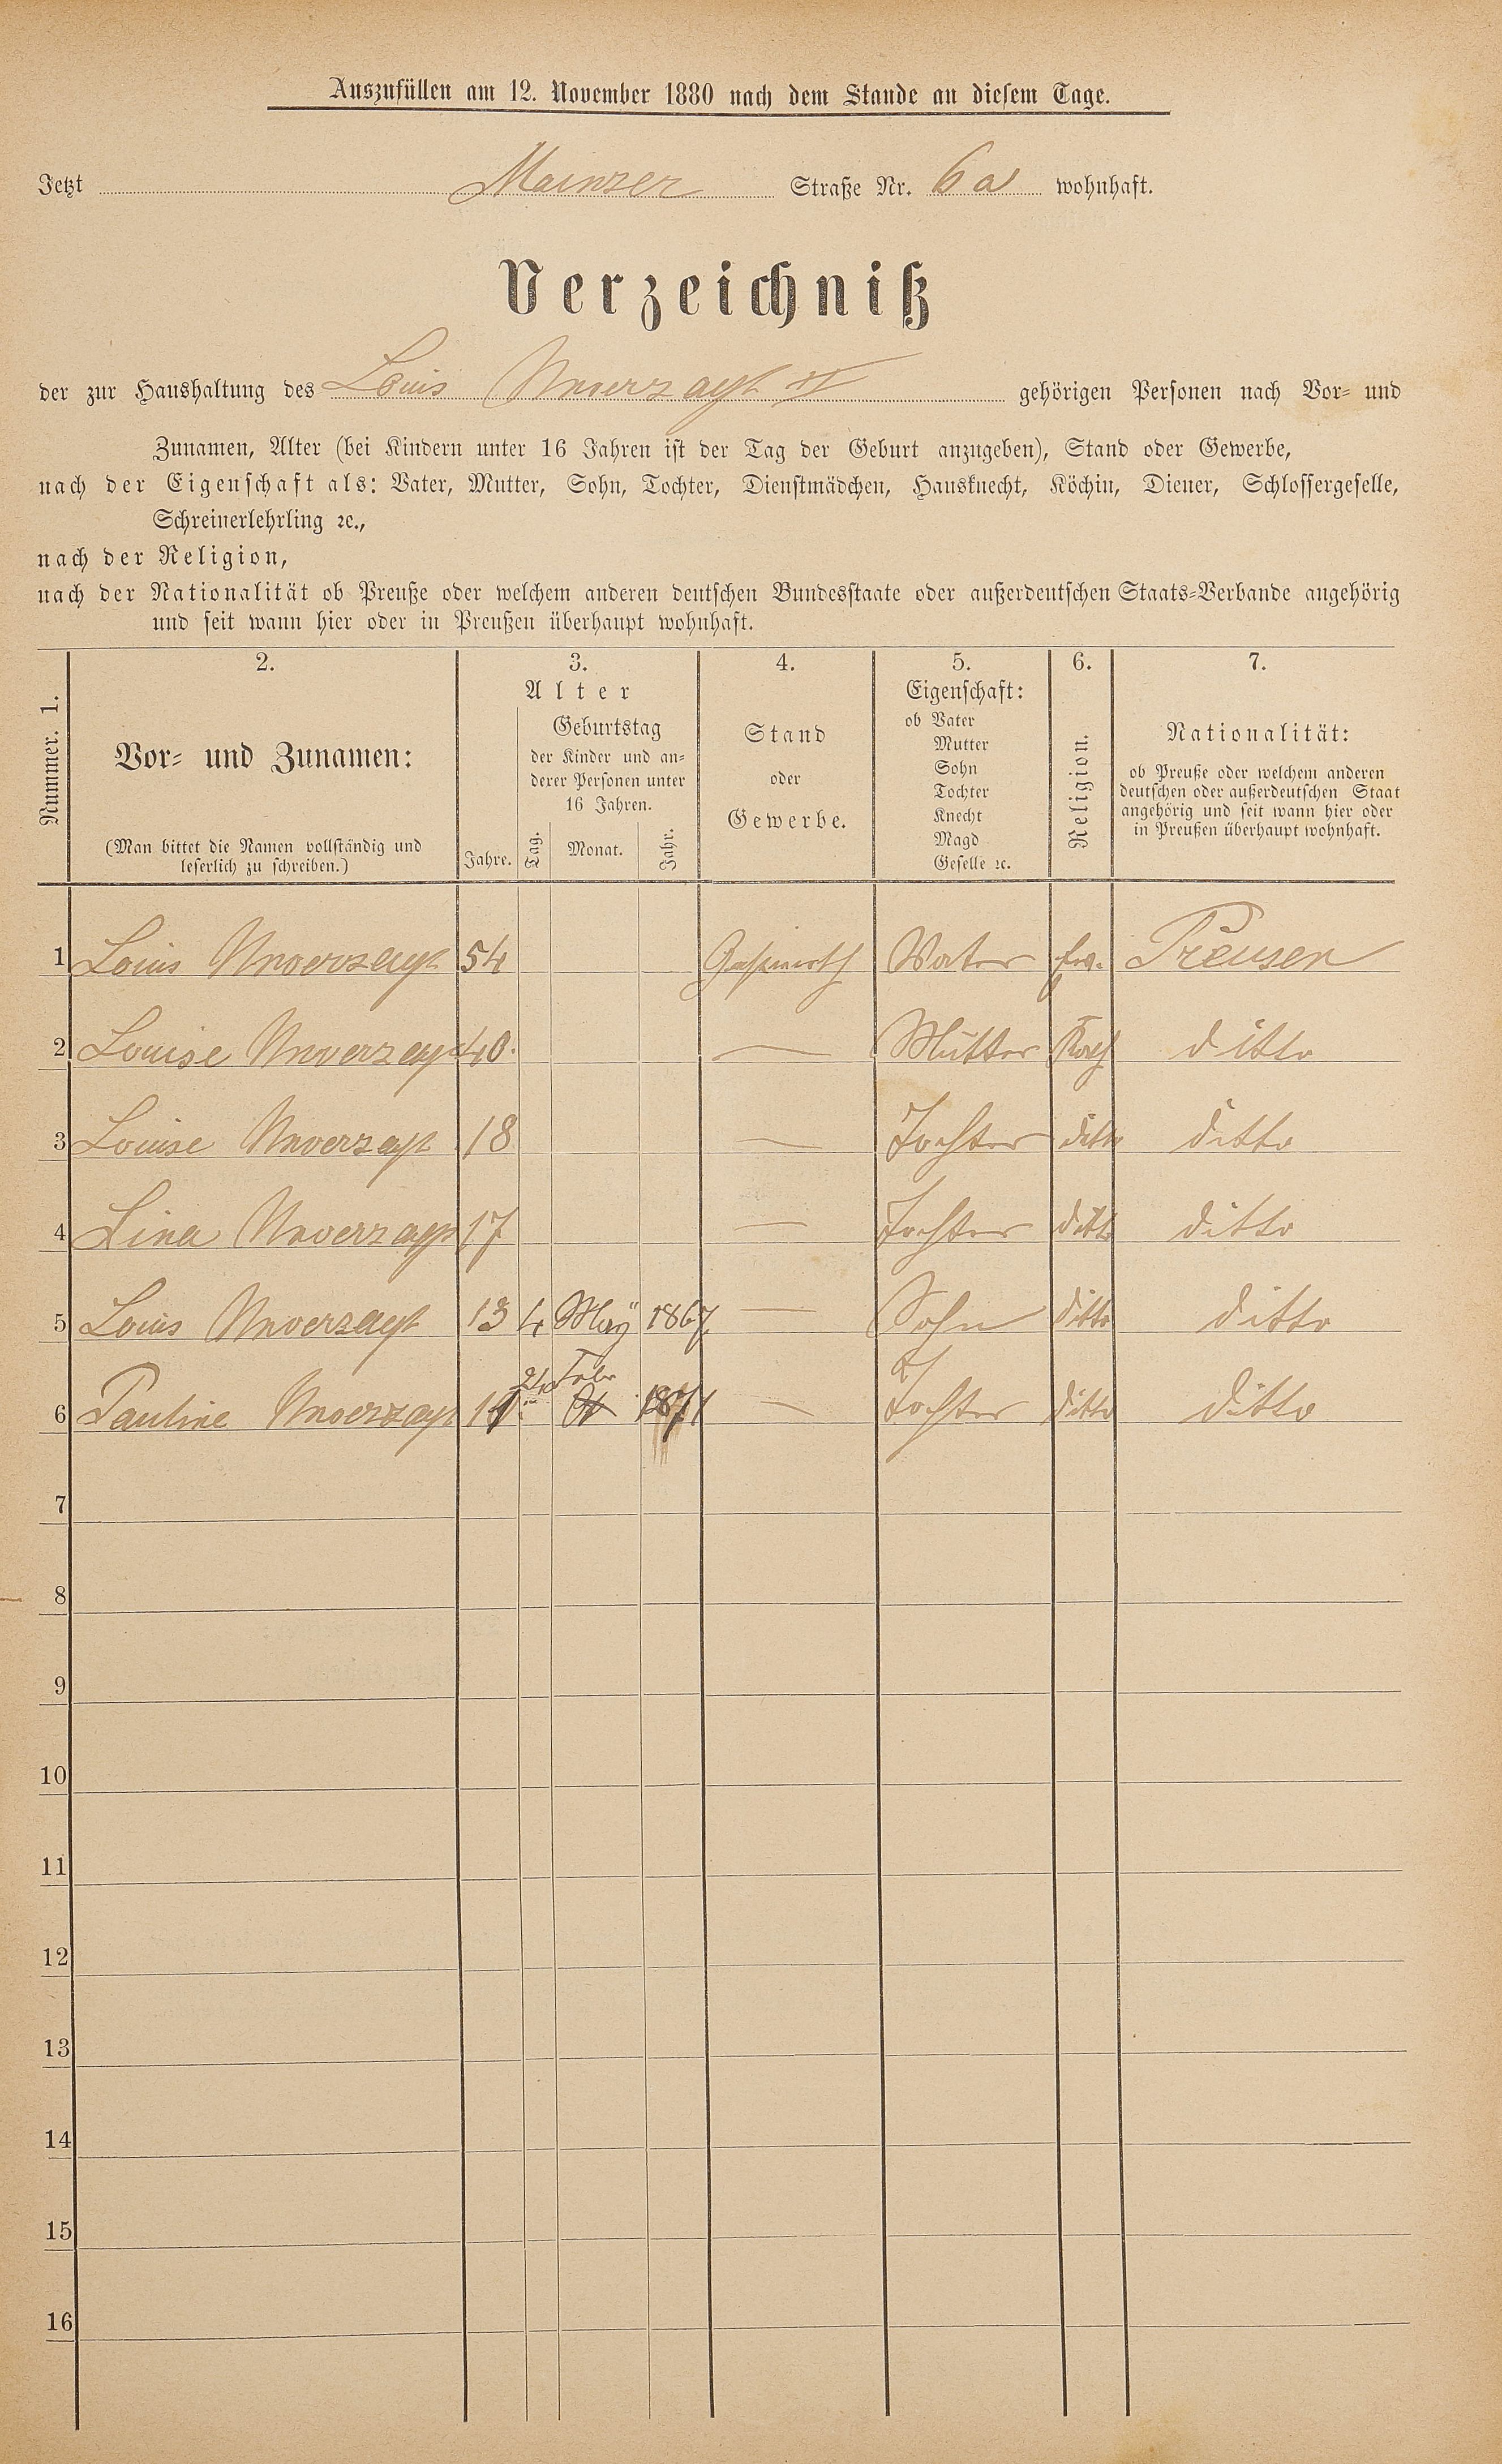 Auszufüllen am 12. November 1880 nach dem Stande an diesem Tage.
Jetzt Mainzer Straße Nr. 6a wohnhaft.
Verzeichniß
der zur Haushaltung des Louis Unverzagt II gehörigen Personen nach Vor- und
Zunamen, Alter (bei Kindern unter 16 Jahren ist der Tag der Geburt anzugeben), Stand oder Gewerbe,
nach der Eigenschaft als: Vater, Mutter, Sohn, Tochter, Dienstmädchen, Hausknecht, Köchin, Diener, Schlossergeselle,
Schreinerlehrling ꝛc.,
nach der Religion,
nach der Nationalität ob Preuße oder welchem anderen deutschen Bundesstaate oder außerdeutschen Staats-Verbande angehörig
und seit wann hier oder in Preußen überhaupt wohnhaft.
Nummer. 1.
2.
Vor- und Zunamen:
(Man bittet die Namen vollständig und
leserlich zu schreiben.)
3.
Alter
Jahre.
Geburtstag
der Kinder und an-
derer Personen unter
16 Jahren.
Tag. Monat. Jahr.
4.
Stand
oder
Gewerbe.
5.
Eigenschaft:
ob Vater
Mutter
Sohn
Tochter
Knecht
Magd
Geselle ꝛc.
6.
Religion.
7.
Nationalität:
ob Preuße oder welchem anderen
deutschen oder außerdeutschen Staat
angehörig und seit wann hier oder
in Preußen überhaupt wohnhaft.
1 Louis Unverzagt 54 Gastwirth Vater ev. Preusen
2 Louise Unverzagt 40. — Mutter Kath ditto
3 Louise Unverzagt 18 — Tochter ditto ditto
4 Lina Unverzagt 17 — Tochter ditto ditto
5 Louis Unverzagt 13 4 May 1867 — Sohn ditto ditto
6 Pauline Unverzagt Febr 1871 — Tochter ditto ditto
7
8
9
10
11
12
13
14
15
16